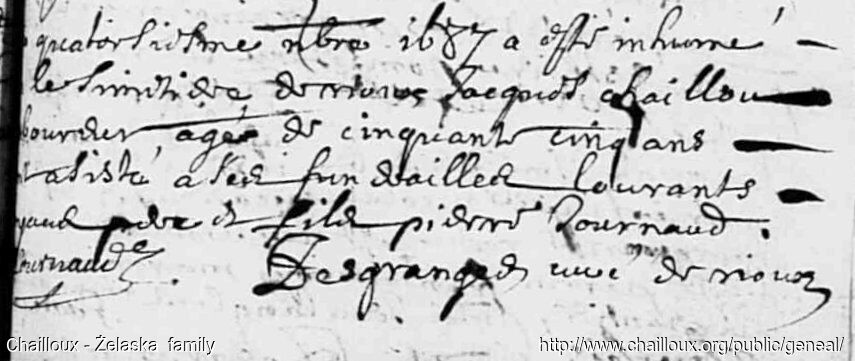 quatorsiesme nbre 1687 a esté inhumé
le simitiere de niouer Jacques chaillou
bourdeur agé de cinquante cinq ans
assisté a ses funerailles lourants
pere et fils pierre Bournaud.
Desgranges curé de niouer
Chailloux - Żelaska family
http://www.chailloux.org/public/geneal/